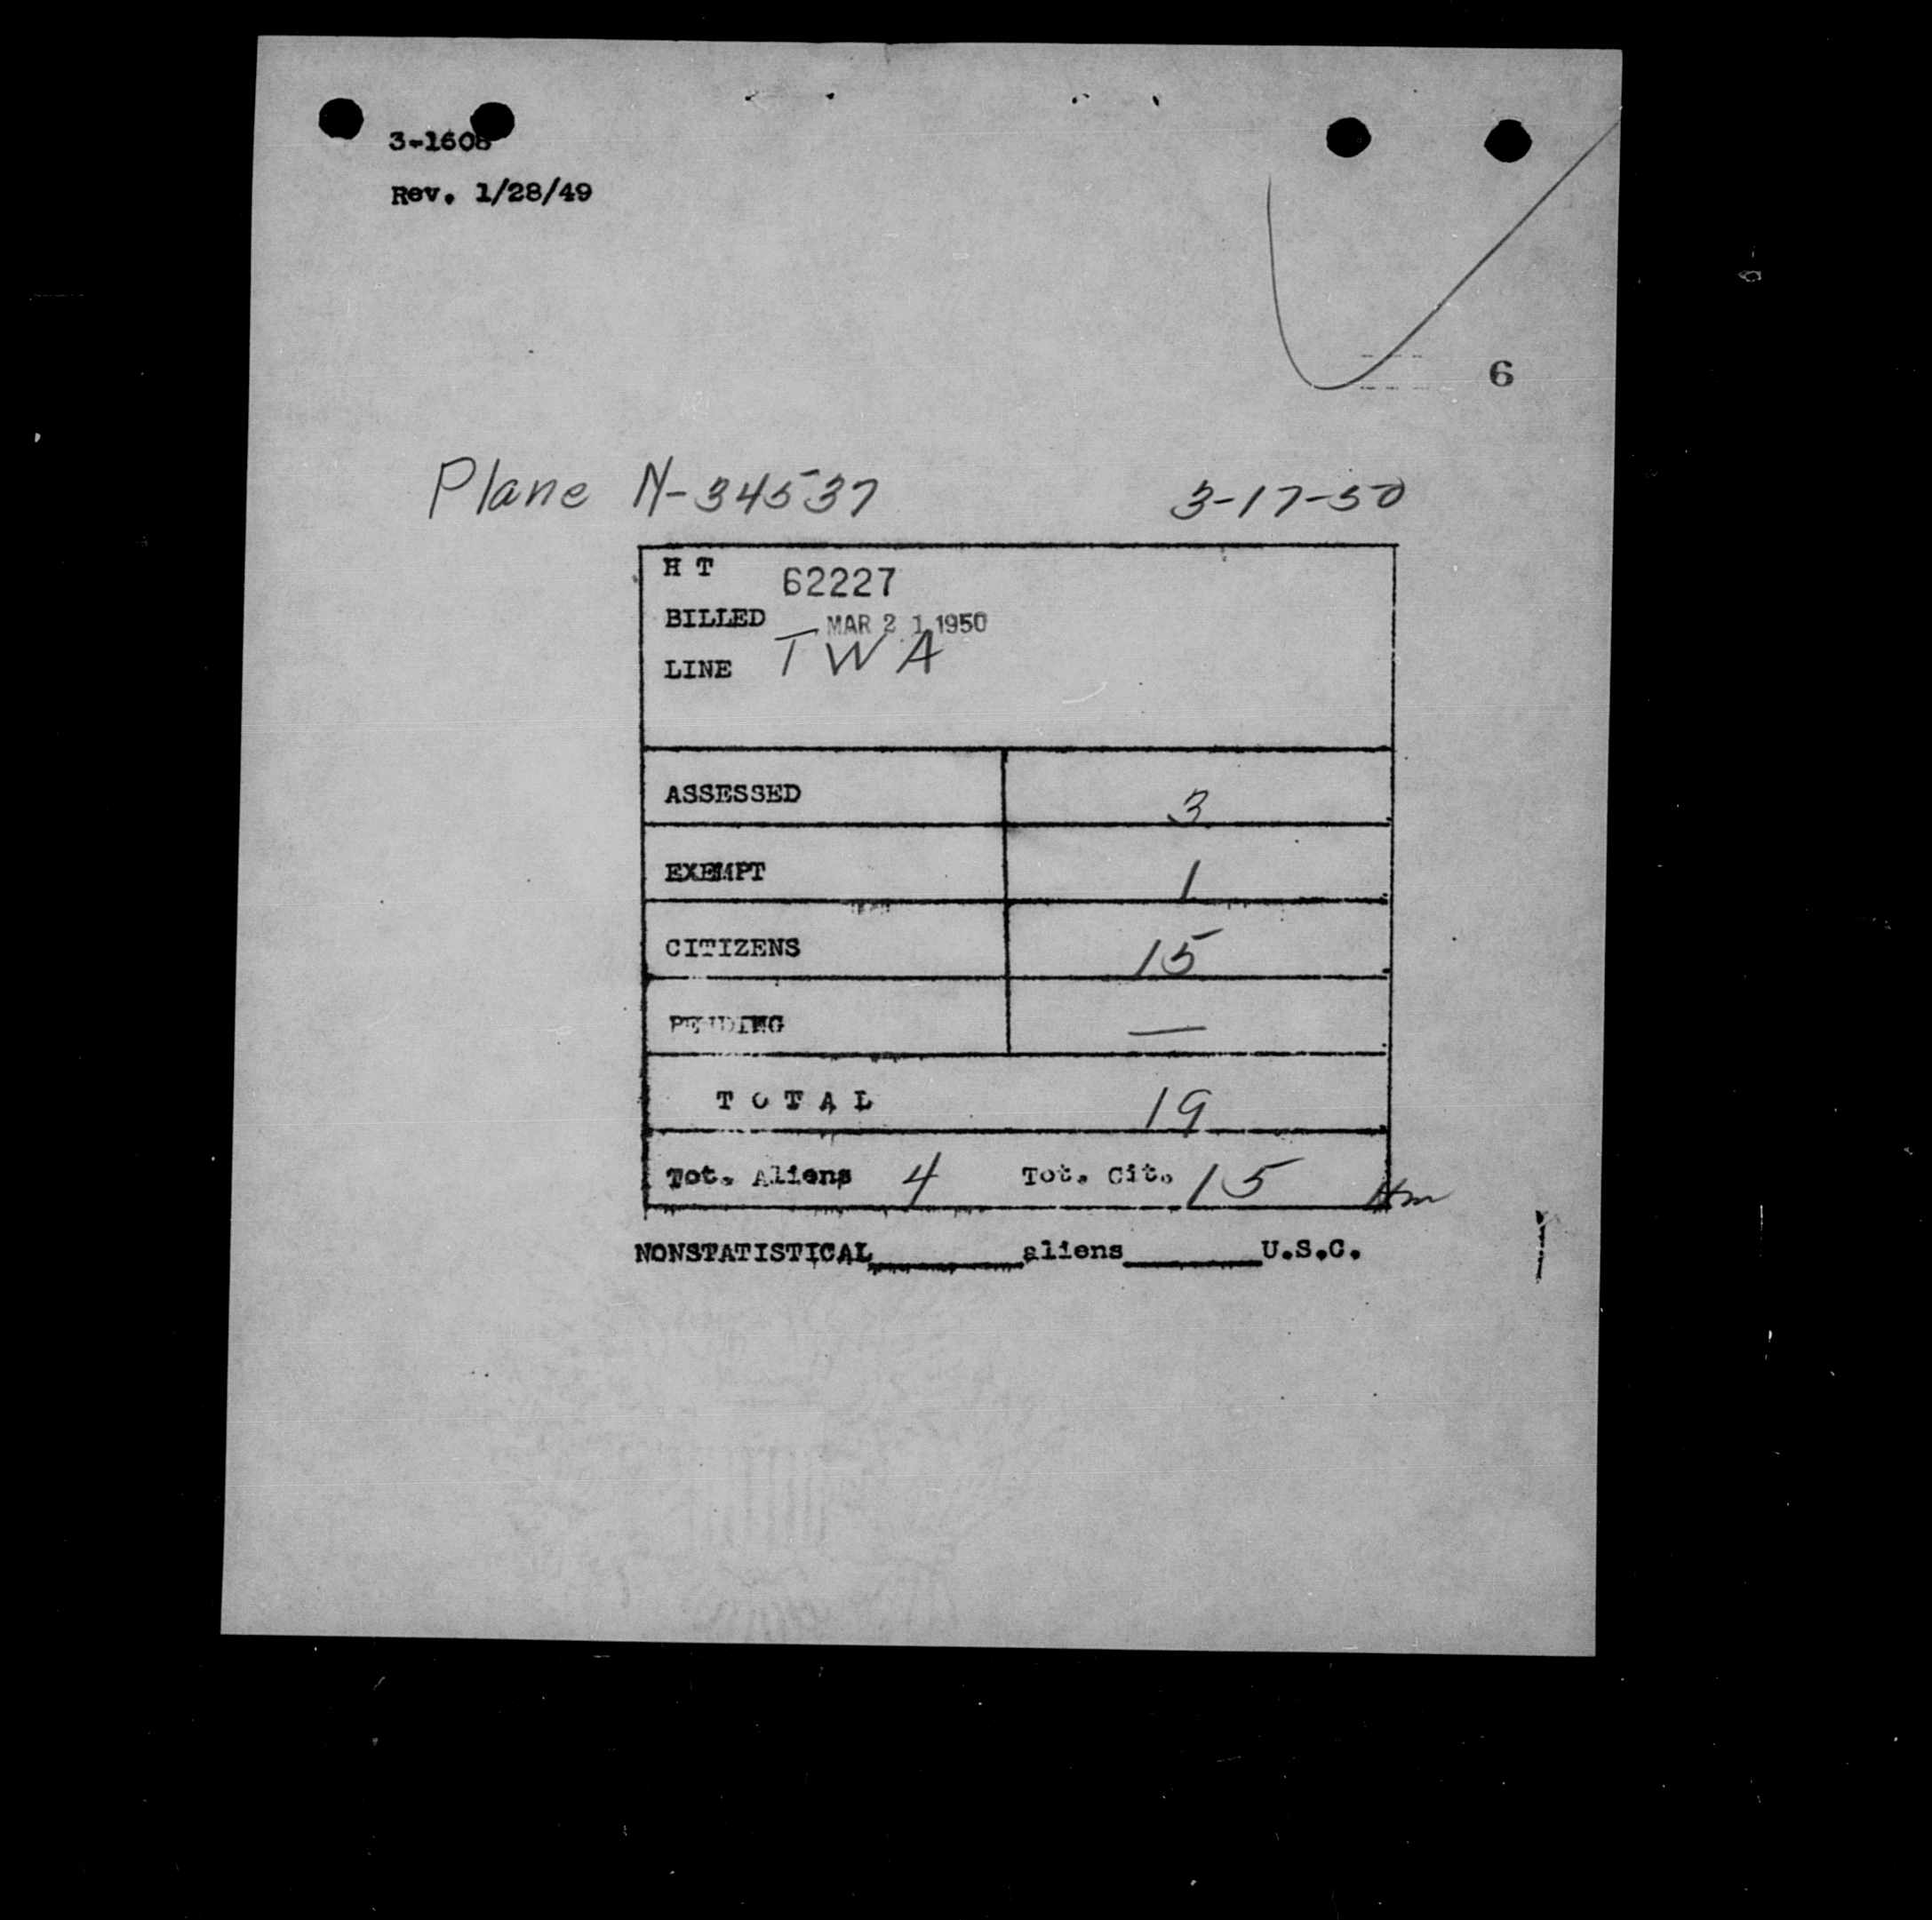 3-1608
Rev. 1/28/49
6
Plane N-34537 3-17-50
H T 62227
BILLED MAR 21 1950
LINE TWA
ASSESSED 3
EXEMPT 1
CITIZENS 15
PENDING —
TOTAL 19
Tot. Aliens 4 Tot. Cit. 15
NONSTATISTICAL______aliens______U.S.C.